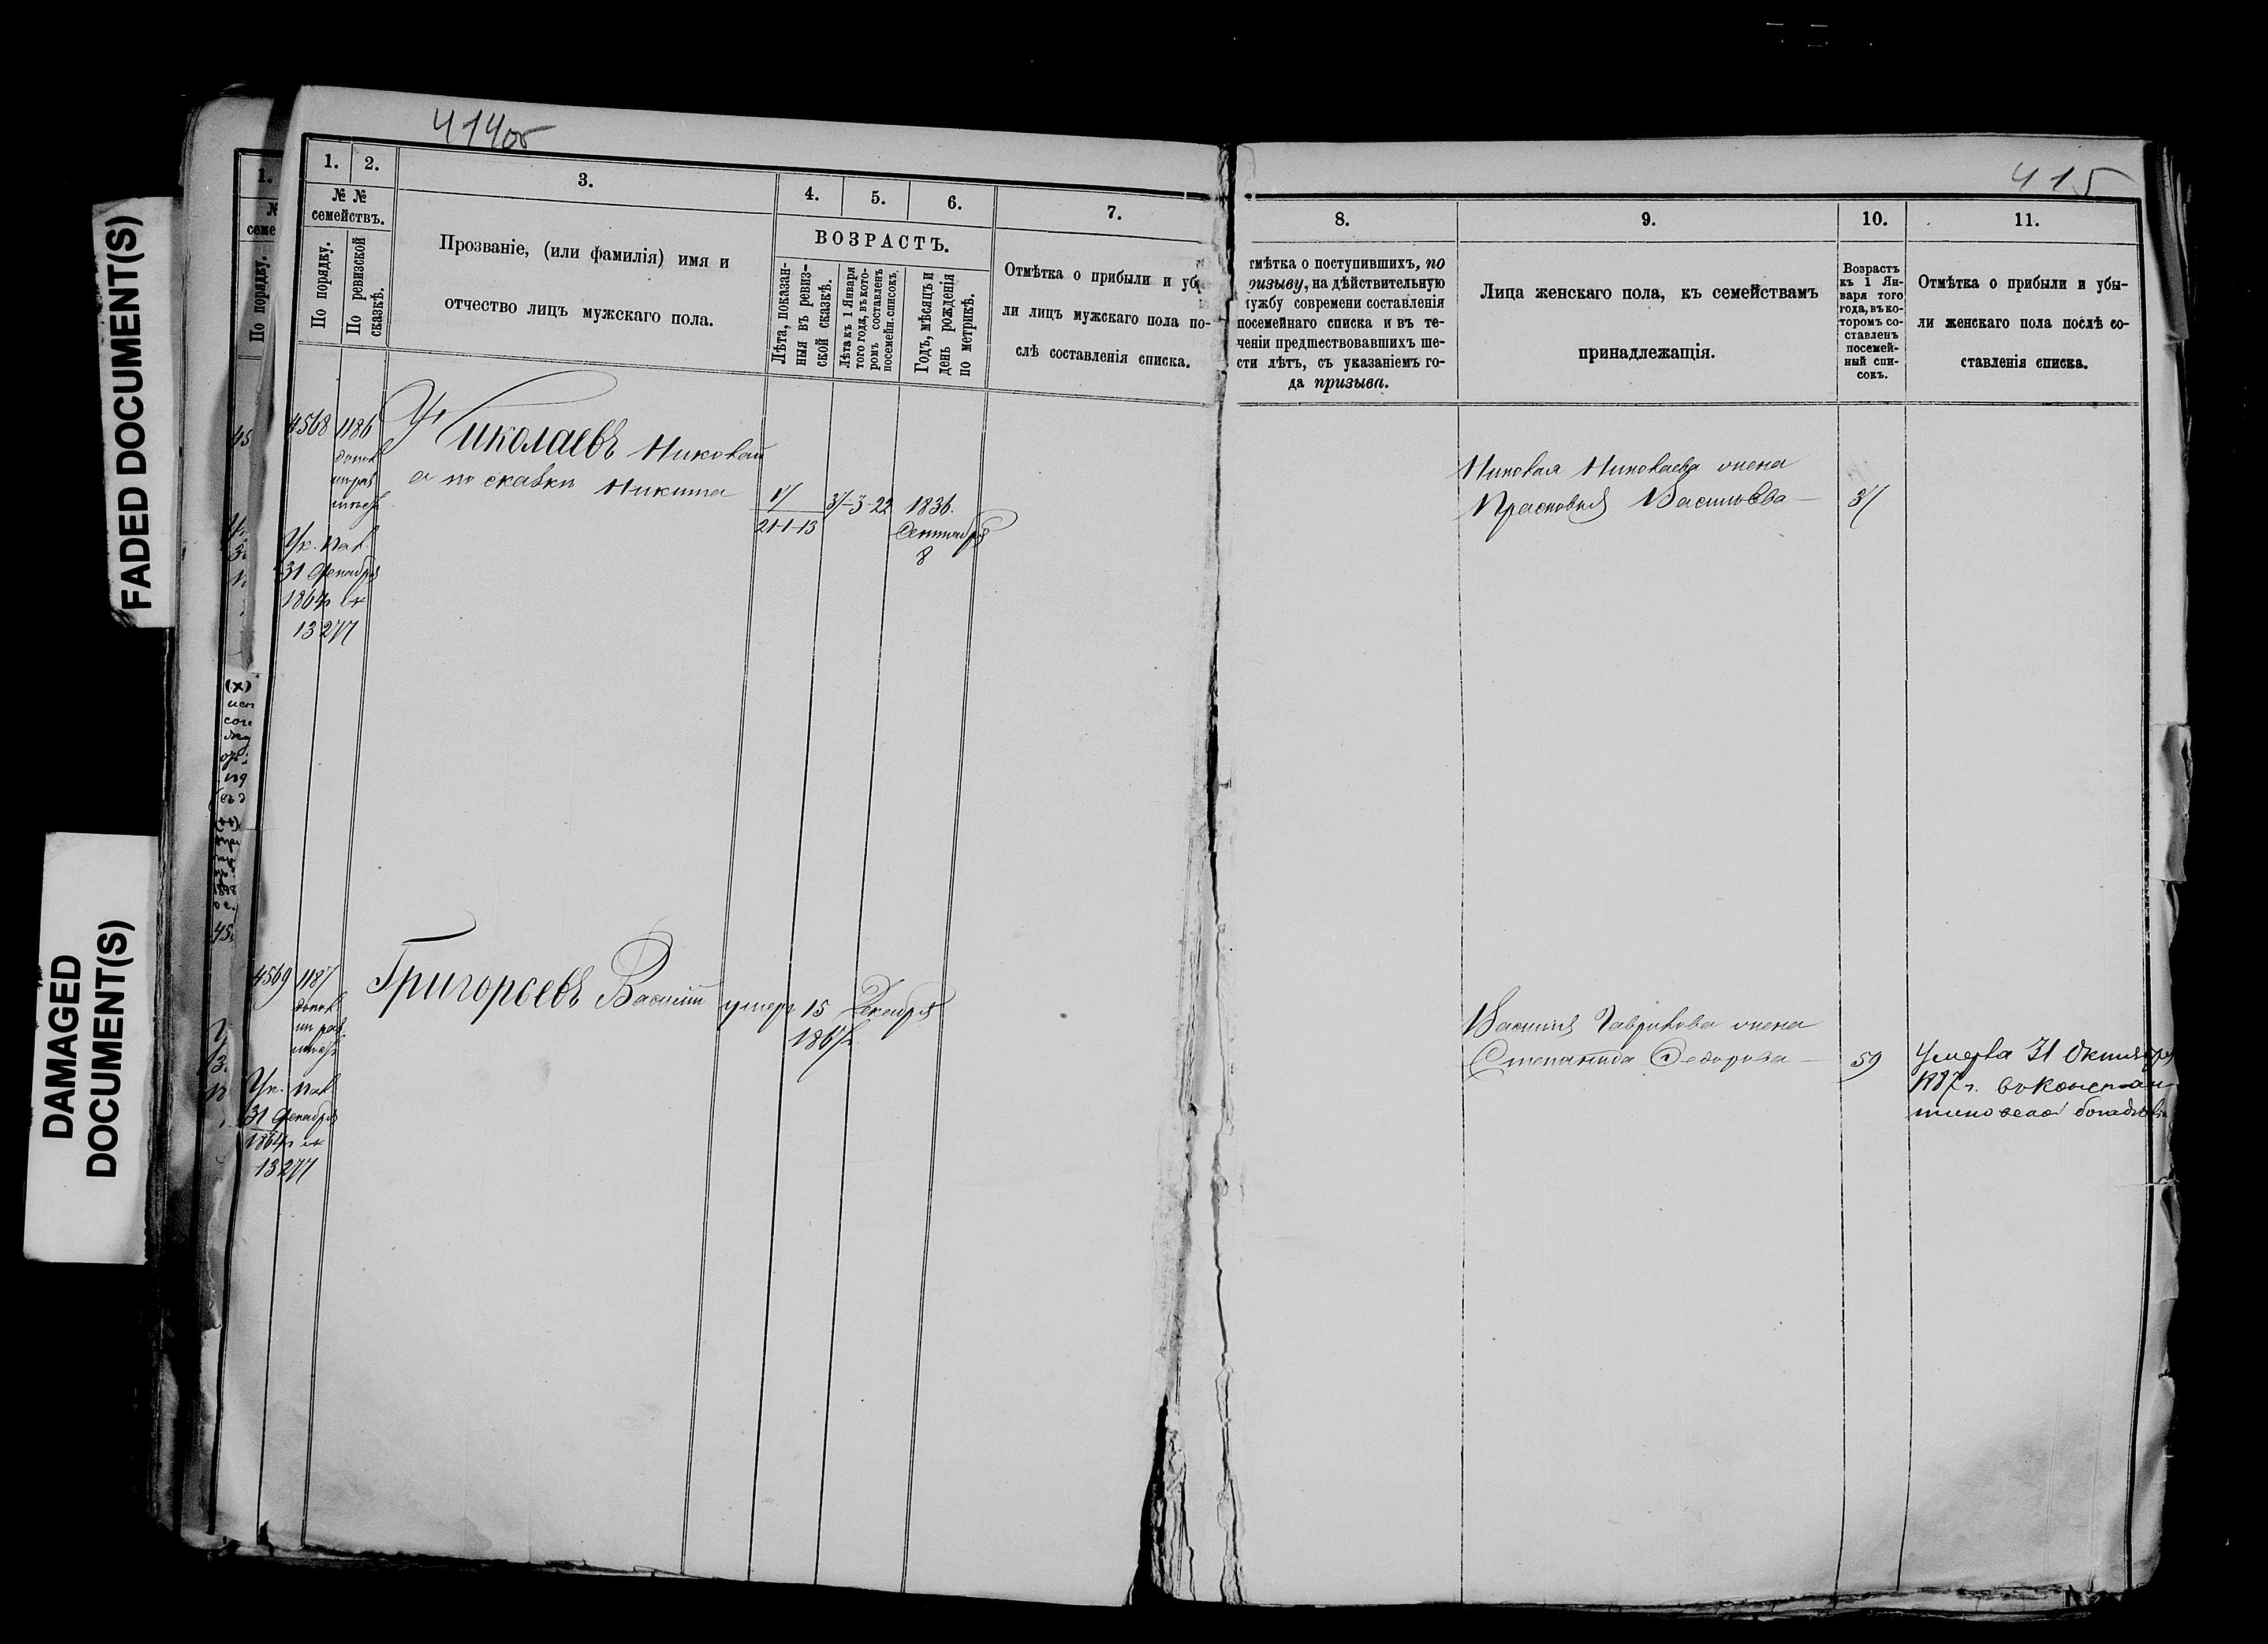 FADED DOCUMENT(S)
DAMAGED
DOCUMENT(S)
414об
1.
2.
3.
4.
5.
6.
7.
№ №
семействъ.
По порядку.
По ревизской
сказкѣ.
Прозваніе, (или фамилія) имя и
отчество лицъ мужскаго пола.
ВОЗРАСТЪ.
Лѣта, показан-
ныя въ ревиз-
ской сказкѣ.
Лѣта къ 1 Января
того года, въ кото-
ромъ составленъ
посемейн. списокъ.
Годъ, мѣсяцъ и
день рожденія
по метрикѣ.
Отмѣтка о прибыли и уб
ли лицъ мужскаго пола по-
слѣ составленія списка.
4568 1186
Николаевъ Николай
а по сказкѣ Никита
17
21-1-13
37-3-22
1836.
Сентября
8
Ук. Пал.
31 Декабря
1864г
13277
4569 1187
Григорьевъ Василій умеръ 15 Декабря
1867г
Ук. Пал.
31 Декабря
1864г
13277
415
8.
9.
10.
11.
тмѣтка о поступившихъ, по
ризыву, на дѣйствительную
ужбу современи составленія
посемейнаго списка и въ те-
ченіи предшествовавшихъ ше-
сти лѣтъ, съ указаніемъ го-
да призыва.
Лица женскаго пола, къ семействамъ
принадлежащія.
Возрастъ
къ 1 Ян-
варя того
года, въ ко-
торомъ со-
ставленъ
посемей-
ный спи-
сокъ.
Отмѣтка о прибыли и убы-
ли женскаго пола послѣ со-
ставленія списка.
Николая Николаева жена
Прасковья Васильева — 37
Василія Гаврилова жена
Степанида Федорова — 59
Умерла 31 Октября
1887г. въ Констан
тиновской богадѣль